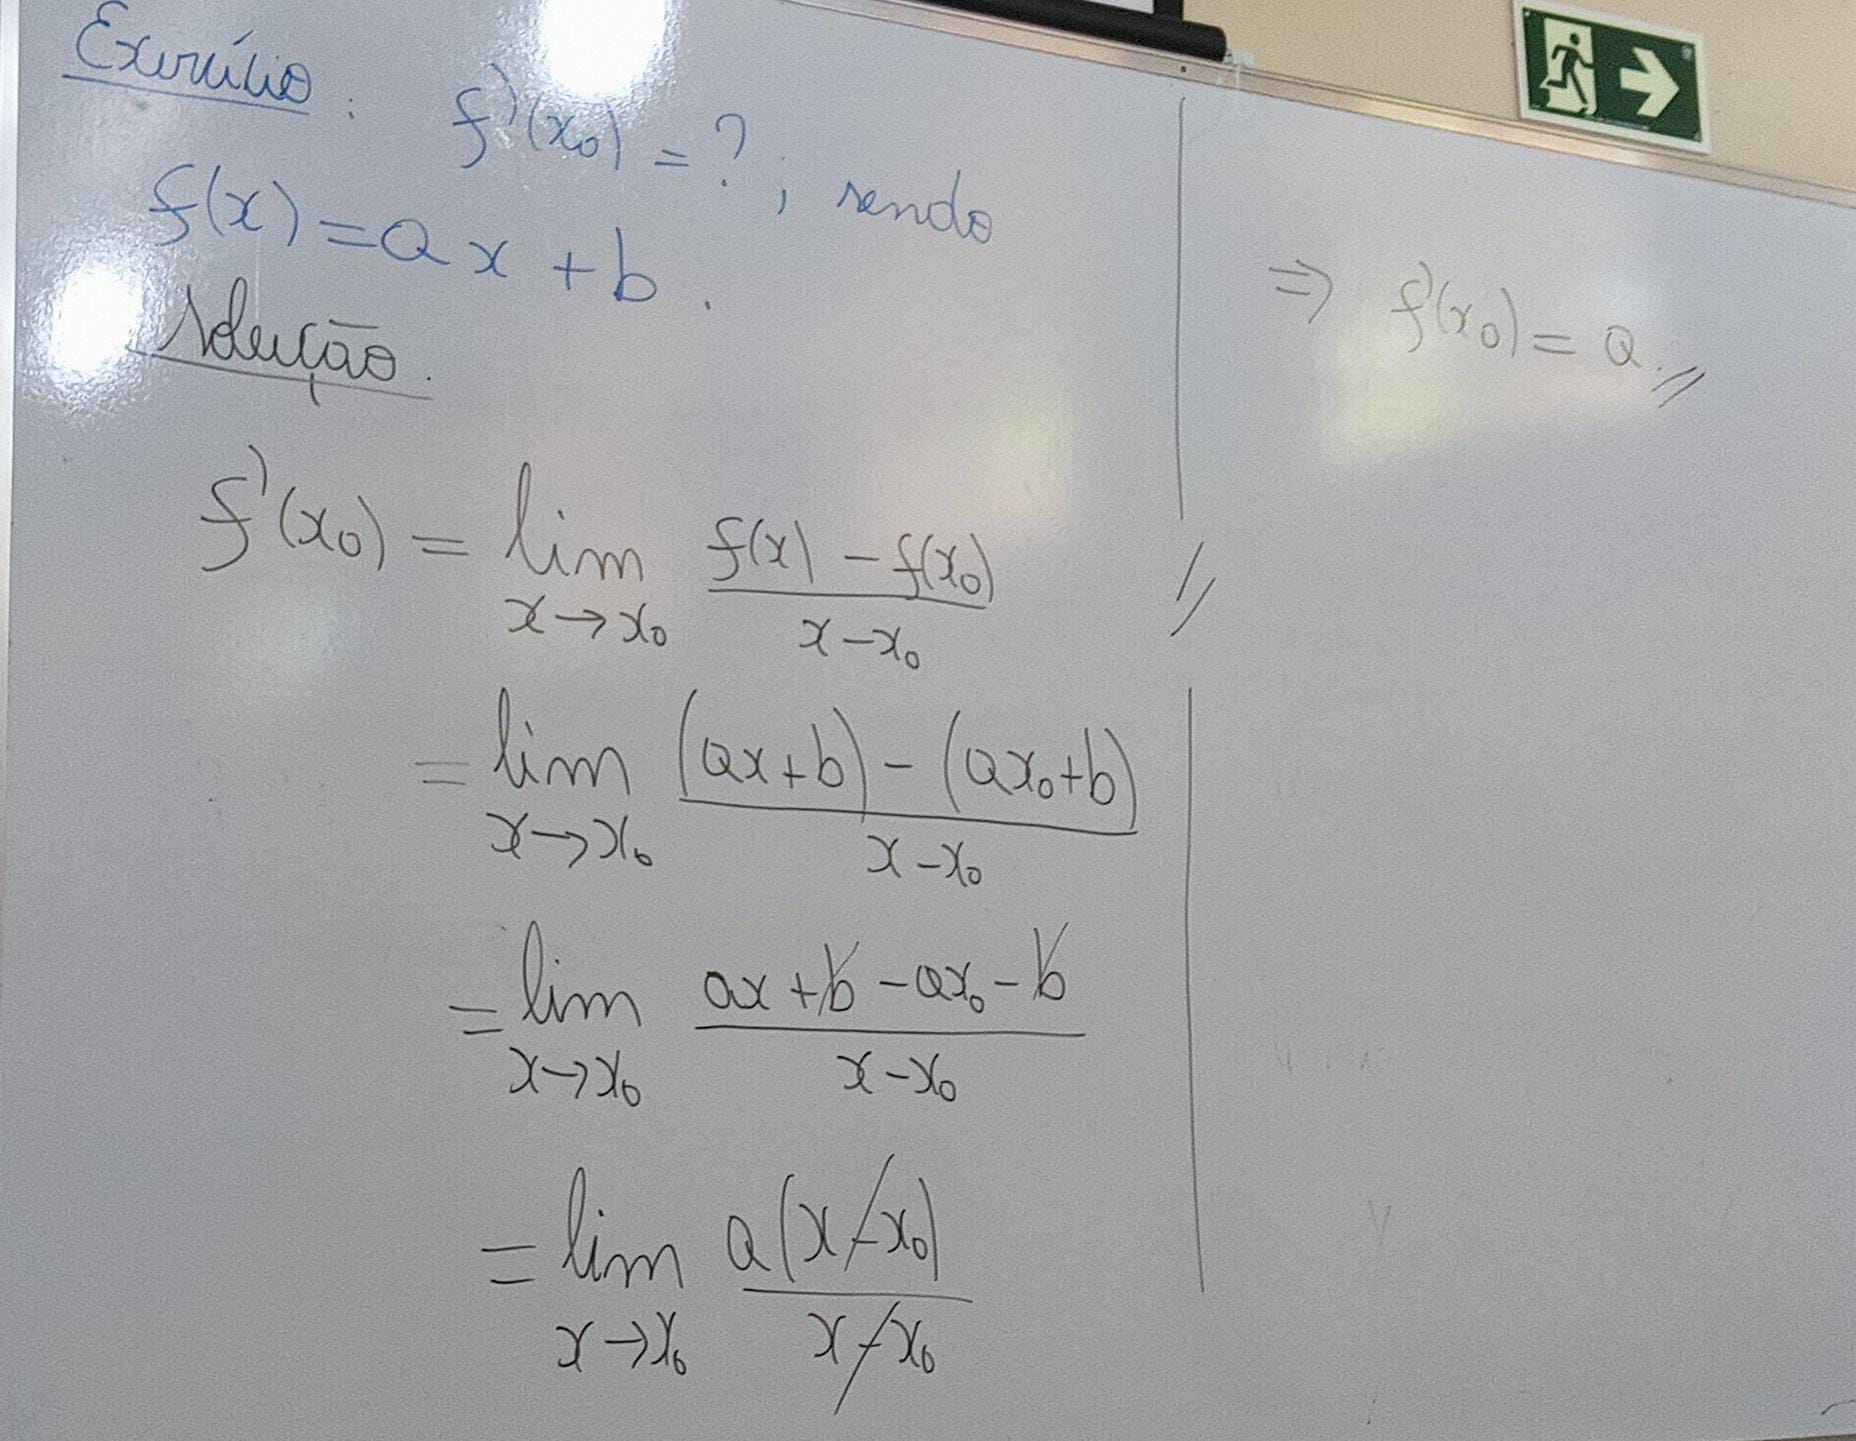 Exercício: f'(x₀) = ?, sendo
f(x) = ax + b.
Solução.
f'(x₀) = lim f(x) - f(x₀)
x→x₀ x-x₀
= lim (ax+b) - (ax₀+b)
x→x₀ x-x₀
= lim ax+b-ax₀-b
x→x₀ x-x₀
= lim a(x-x₀)
x→x₀ x-x₀
⇒ f'(x₀) = a.//